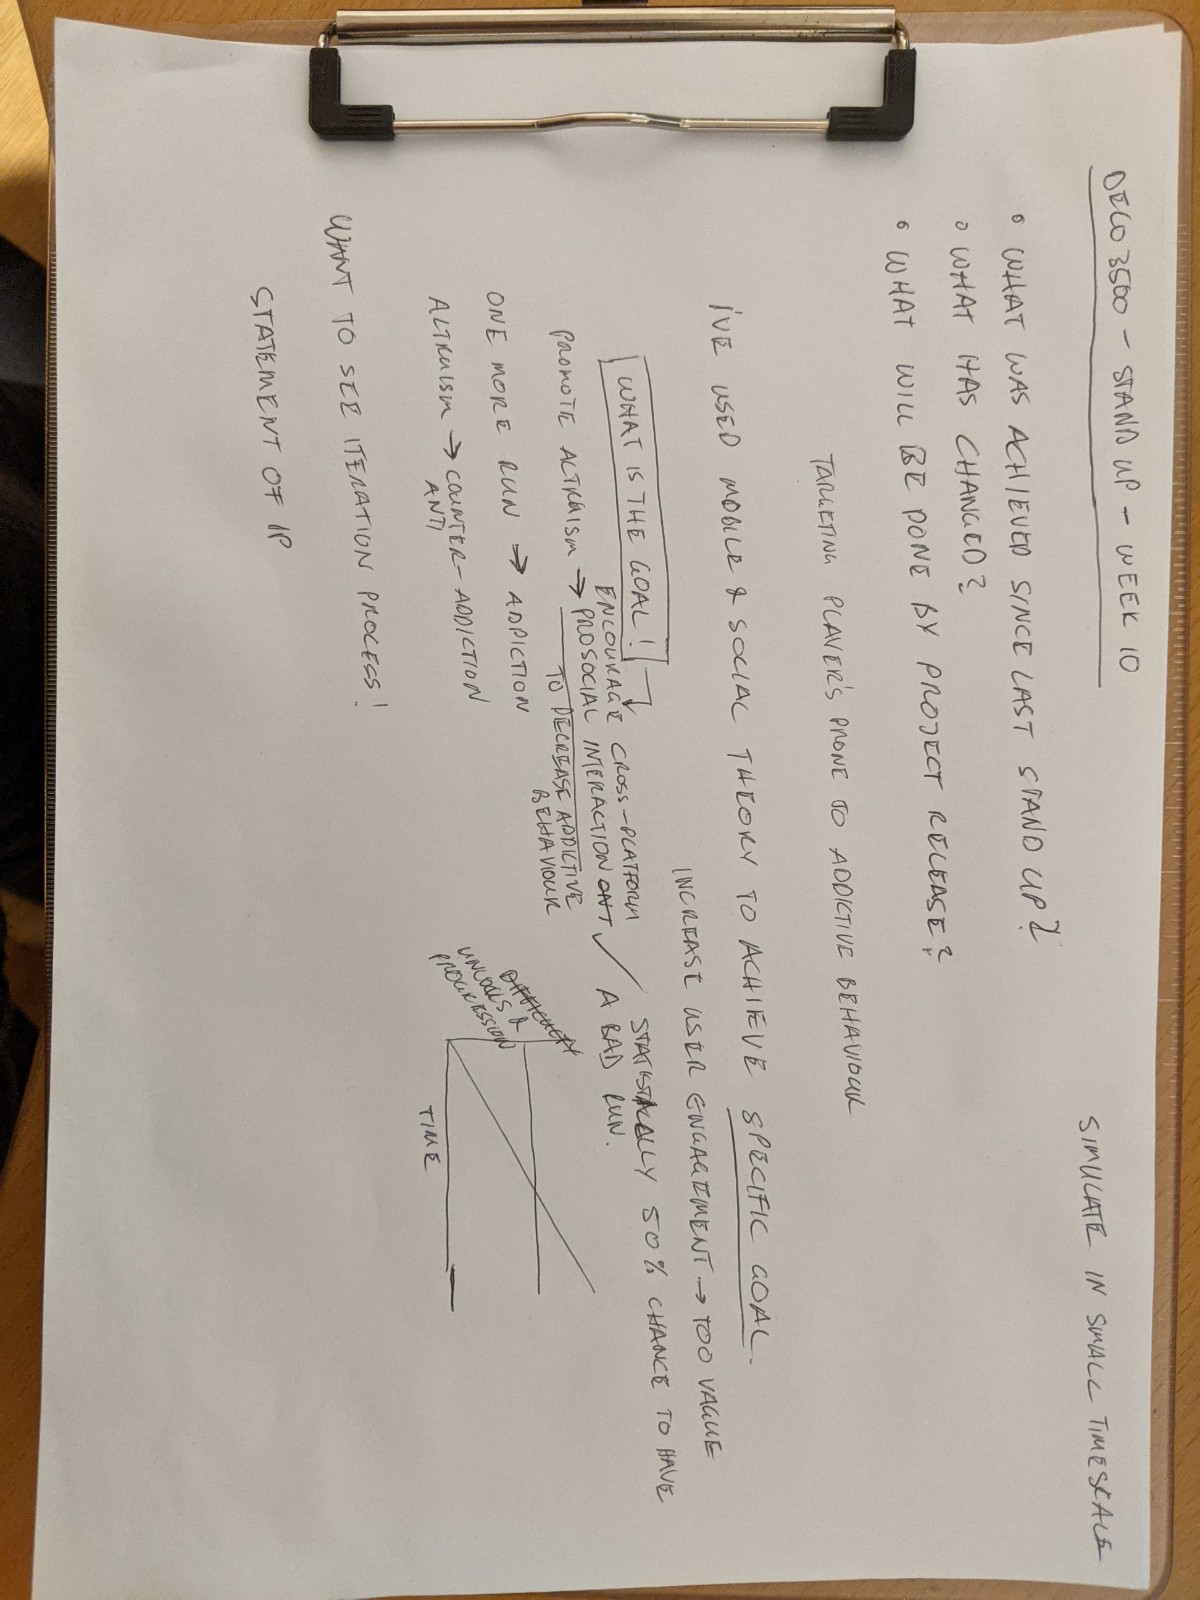 DECO 3500 - STAND UP - WEEK 10
SIMULATE IN SMALL TIMESCALE
WHAT WAS ACHIEVED SINCE LAST STAND UP?
WHAT HAS CHANGED?
WHAT WILL BE DONE BY PROJECT RELEASE?
TARGETING PLAYER'S PRONE TO ADDICTIVE BEHAVIOUR
I'VE USED MOBILE & SOCIAL THEORY TO ACHIEVE SPECIFIC GOAL.
INCREASE USER ENGAGEMENT → TOO VAGUE
WHAT IS THE GOAL!
ENCOURAGE CROSS-PLATFORM
PROMOTE ALTRUISM → PROSOCIAL INTERACTION OUT ✓
TO DECREASE ADDICTIVE
BEHAVIOUR
STATISTICALLY 50% CHANCE TO HAVE
A BAD RUN.
ONE MORE RUN → ADDICTION
ALTRUISM → COUNTER-ADDICTION
ANTI
DIFFICULTY
UNLOCKS &
PROGRESSION
TIME
WANT TO SEE ITERATION PROCESS!
STATEMENT OF IP